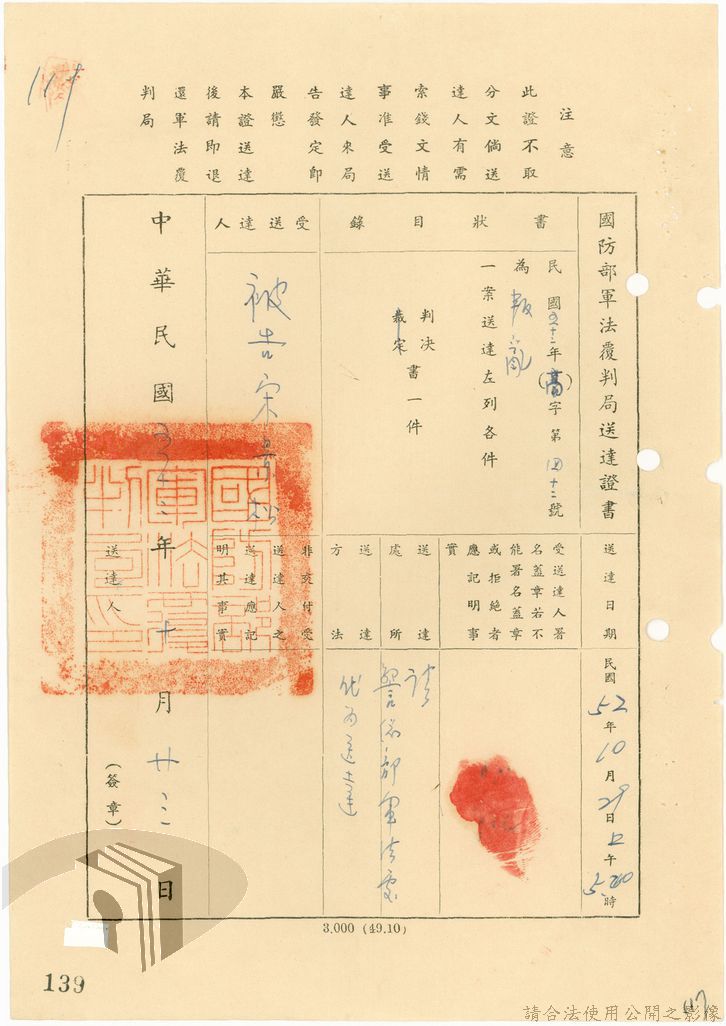 注意
此證不取
分文倘送
達人有需
索錢文情
事准受送
達人來局
告發定即
嚴懲
本證送達
後請即退
還軍法覆
判局
國防部軍法覆判局送達證書
書狀目錄
民國五十二年(高)字第四十二號
為叛亂
一案送達左列各件
判決
裁定
書一件
受送達人
被告宋景松
送達日期
民國52年10月29日上午5.20時
受送達人署
名蓋章若不
能署名蓋章
或拒絕者
應記明事
實
送達處所
請
警備部軍法處
送達方法
代為送達
非交付受
送達人之
送達應記
明其事實
中華民國五十二年十月廿三日
送達人
(簽章)
3,000 (49.10)
139
117
請合法使用公開之影像